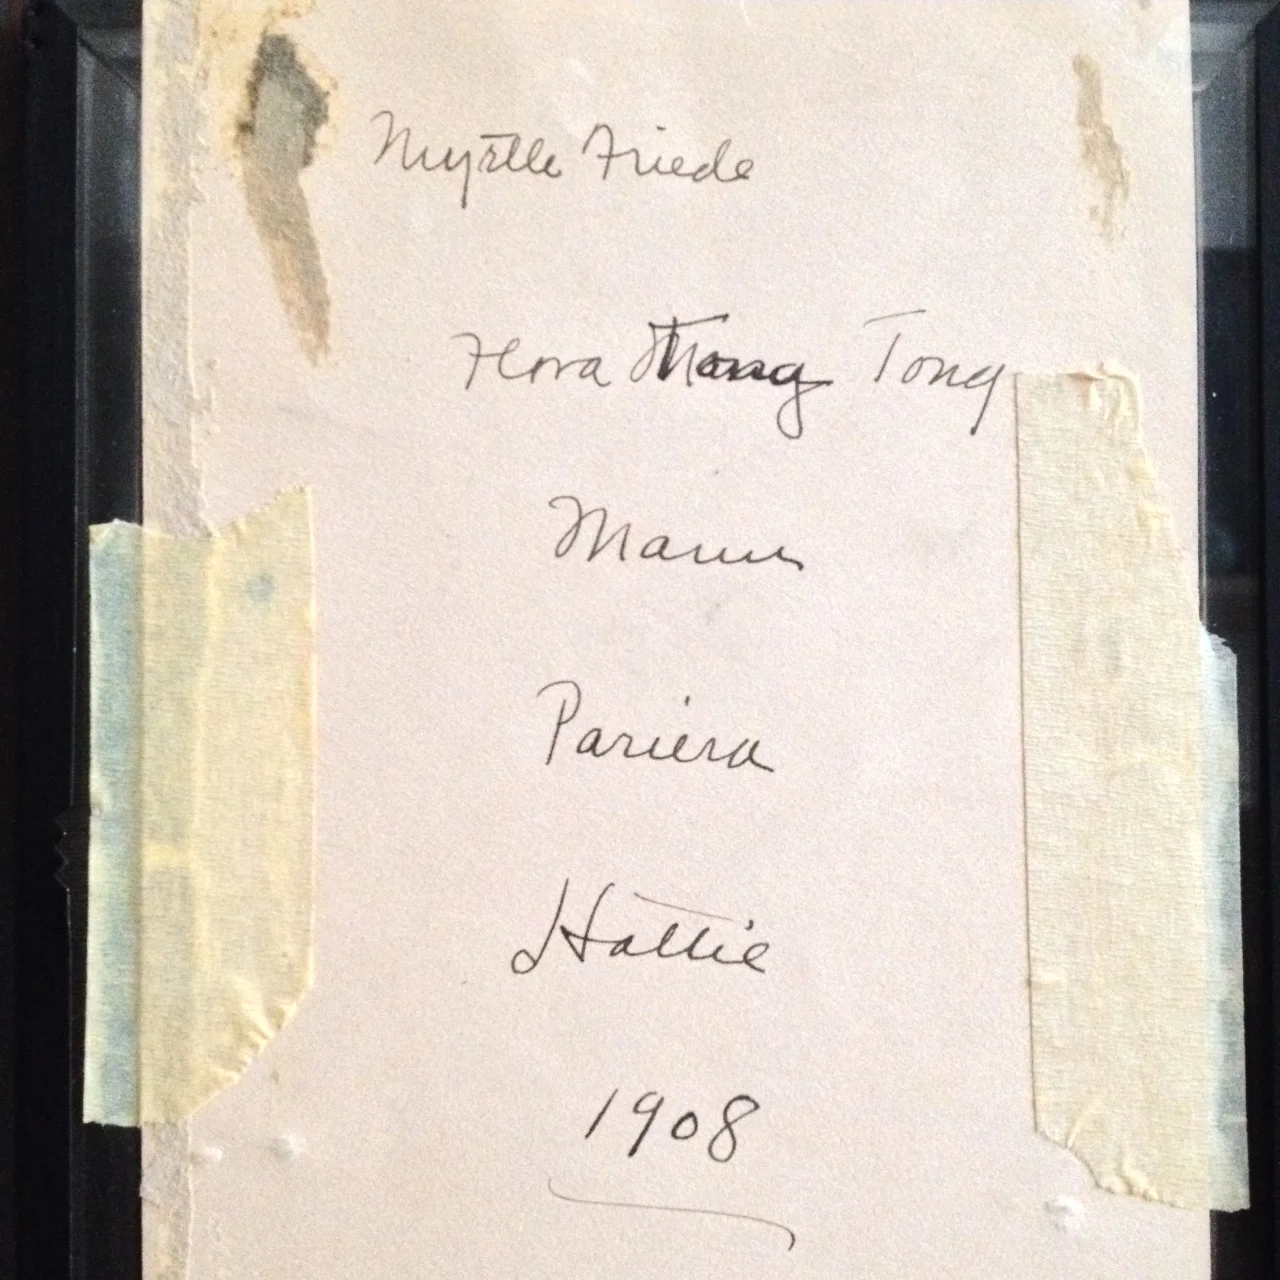 Myrtle Friede
Flora Tong
Pariera
Hattie
1908